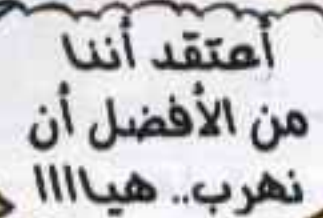 أعتقد أننا
من الأفضل أن
نهرب.. هياااا